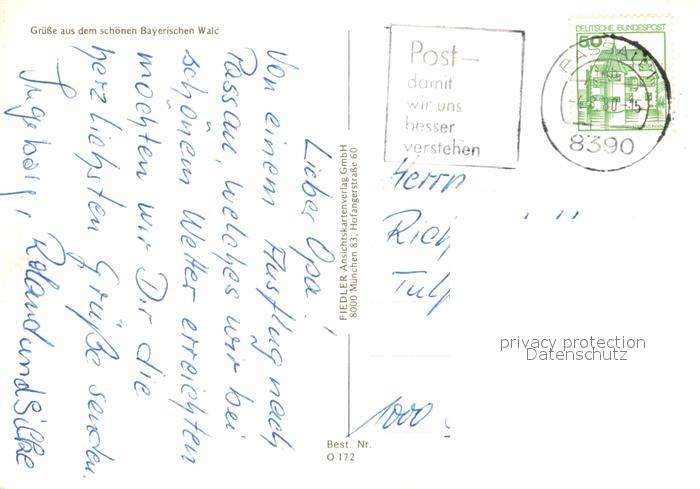 Grüße aus dem schönen Bayerischen Wald
Lieber Opa!
Von einem Ausflug nach
Passau, welches wir bei
schönem Wetter erreichten
möchten wir Dir die
herzlichsten Grüße senden.
Ingeborg, Roland und Silke
FIEDLER Ansichtskartenverlag GmbH
8000 München 83, Hofangerstraße 60
Best. Nr.
O 172
Post-
damit
wir uns
besser
verstehen
DEUTSCHE BUNDESPOST
50
PASSAU
80-15
8390
Herrn
Rich
Tulp
1000
privacy protection
Datenschutz